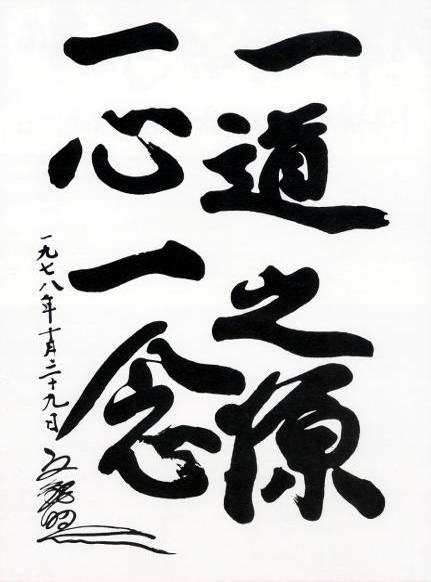 一道之源
一心一念
一九七八年十月二十九日 文鮮明